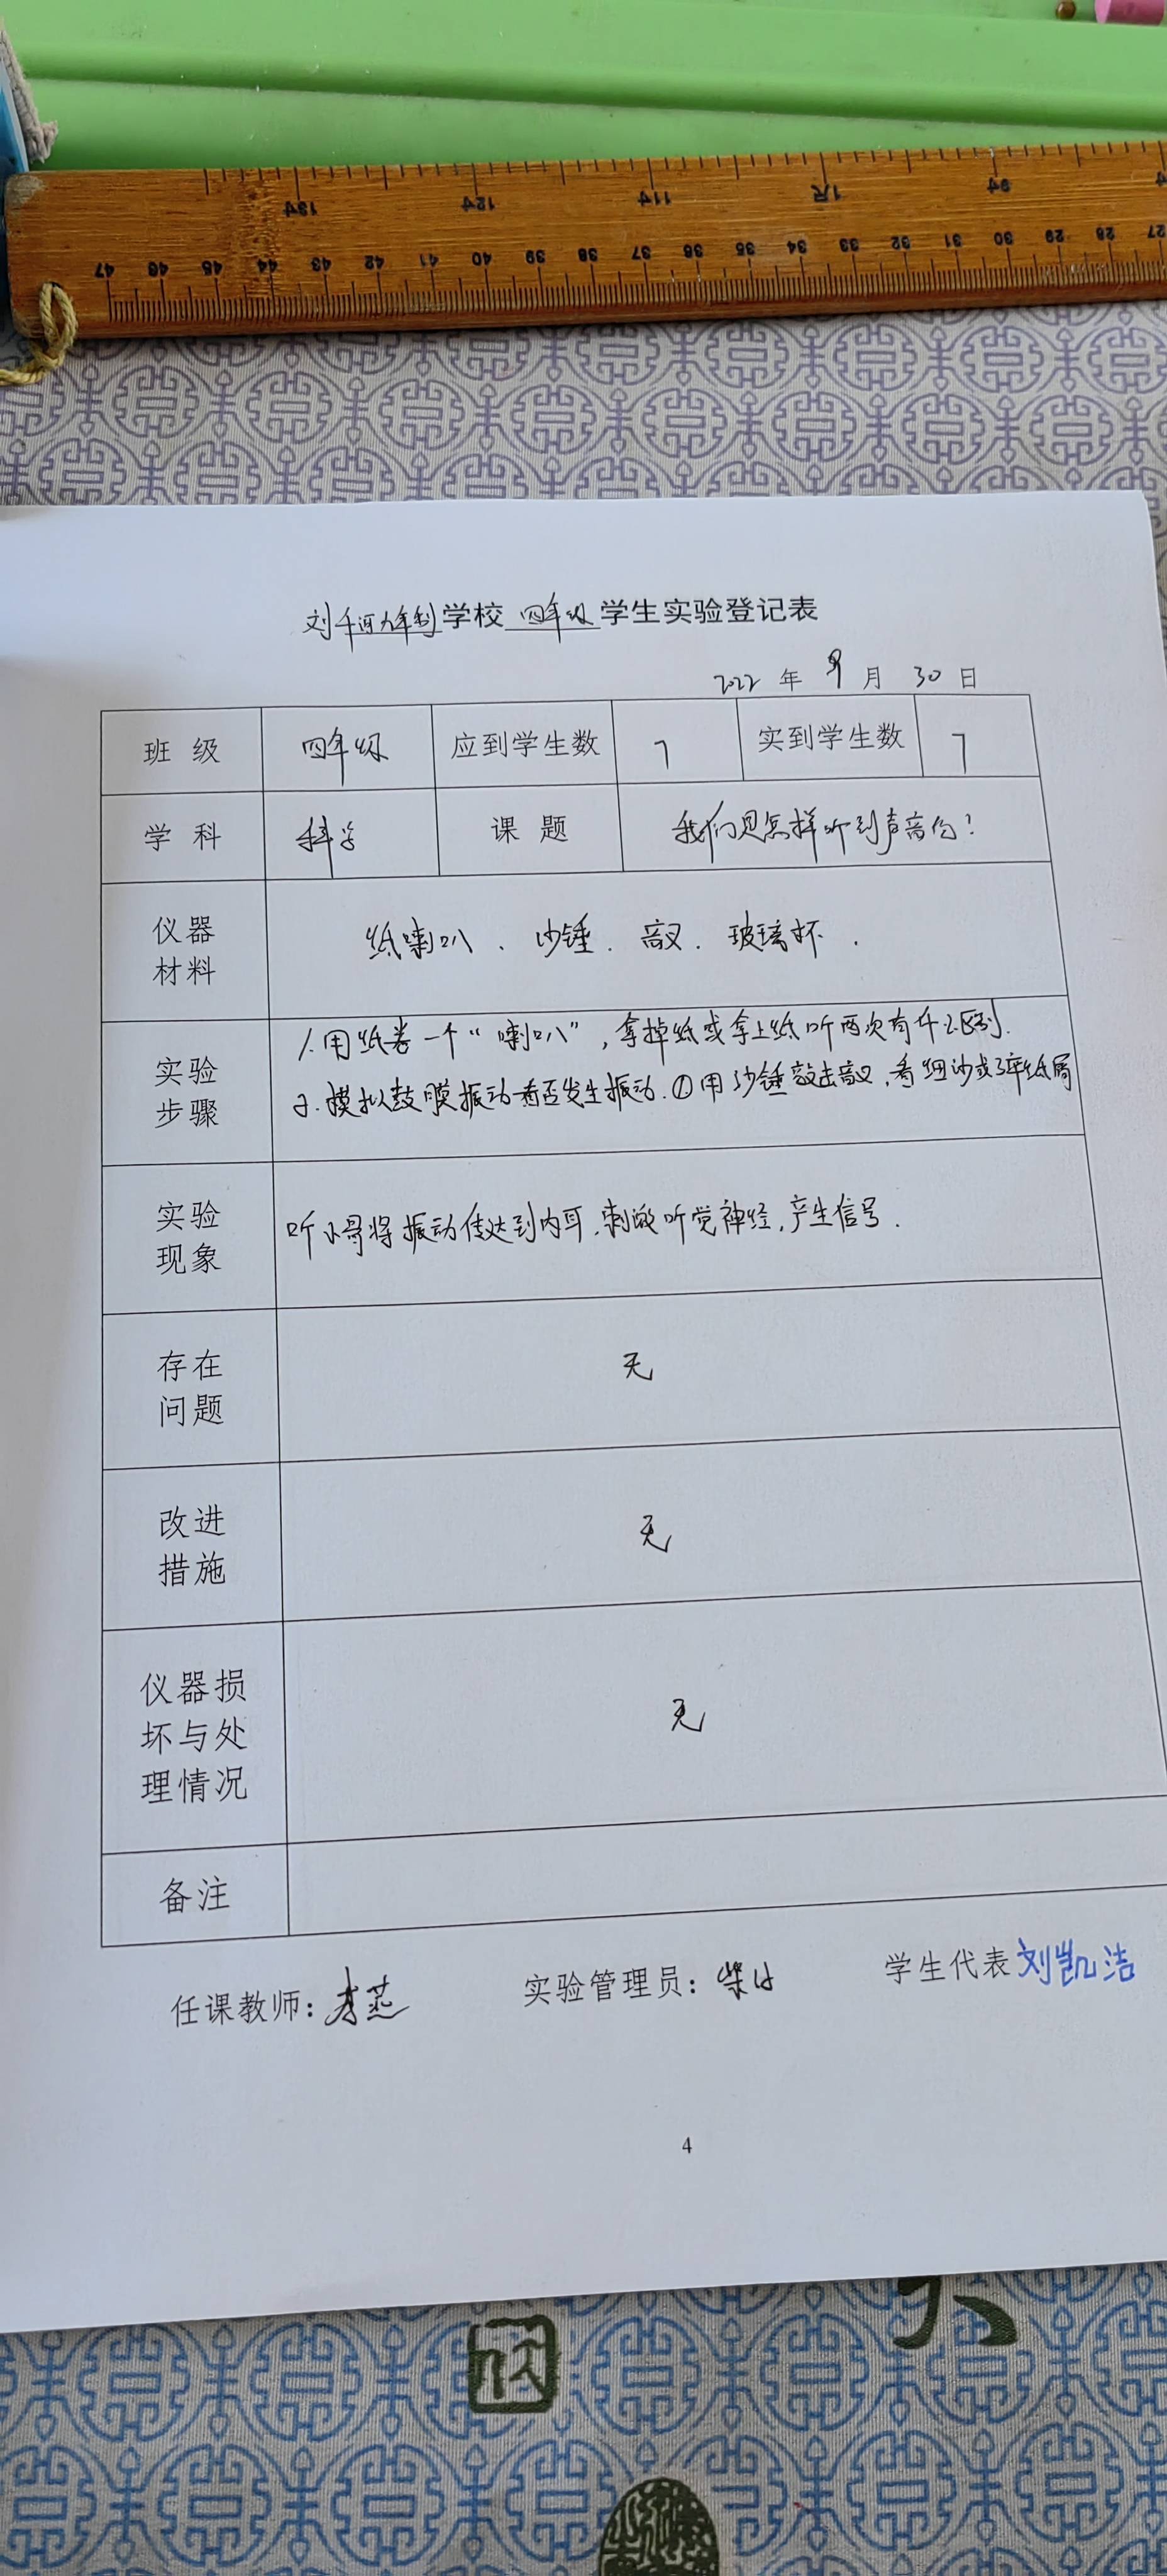 13寸 12寸 11寸 1尺 9寸
47 46 45 44 43 42 41 40 39 38 37 36 35 34 33 32 31 30 29 28 27
刘千河九年制学校 四年级 学生实验登记表
2022 年 9 月 30 日
班级 四年级 应到学生数 7 实到学生数 7
学科 科学 课题 我们是怎样听到声音的?
仪器材料 纸喇叭、沙锤、音叉、玻璃杯.
实验步骤 1.用纸卷一个“喇叭”,拿掉纸或拿上纸听两次有什么区别.
2.模拟鼓膜振动看否发生振动.①用沙锤敲击音叉,看细沙或碎纸屑
实验现象 听小骨将振动传达到内耳,刺激听觉神经,产生信号.
存在问题 无
改进措施 无
仪器损坏与处理情况 无
备注
任课教师:李燕 实验管理员: 学生代表 刘凯洁
4